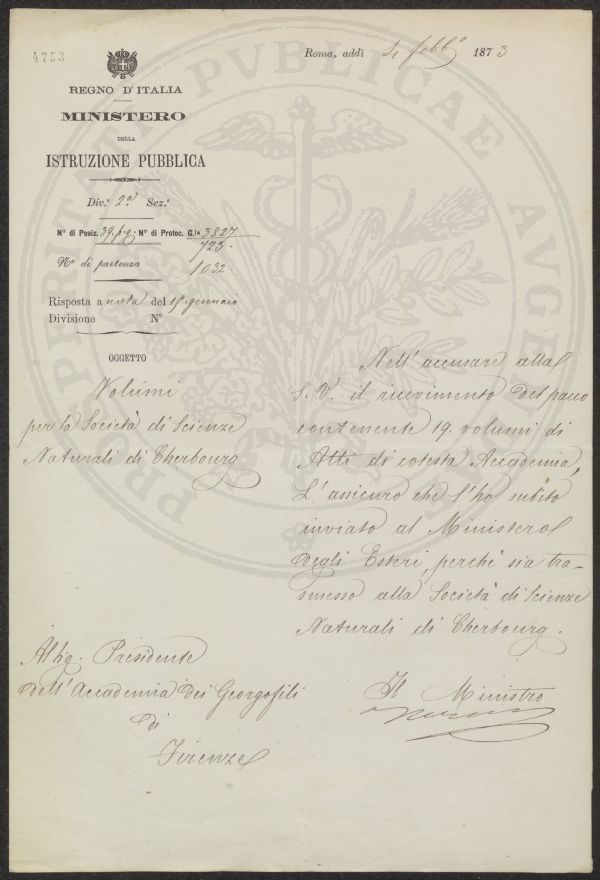 4753
Roma, addì 4 febbº 1873
REGNO D'ITALIA
MINISTERO
DELLA
ISTRUZIONE PUBBLICA
Div.e 2a Sez.e
Nº di Posiz. 39. Nº di Protoc. G.le 3827
723.
Nº di partenza 1032.
Risposta a nota del gennaio
Divisione Nº
OGGETTO
Volumi
per la Società di Scienze
Naturali di Cherbourg
Nell' accusare alla
S. V. il ricevimento del pacco
contenente 19. volumi di
Atti di cotesta Accademia,
L'assicuro che l'ho subito
inviato al Ministero
degli Esteri, perchè sia tra-
smesso alla Società di Scienze
Naturali di Cherbourg.
Al Sig. Presidente
dell'Accademia dei Georgofili
di
Firenze
Il Ministro